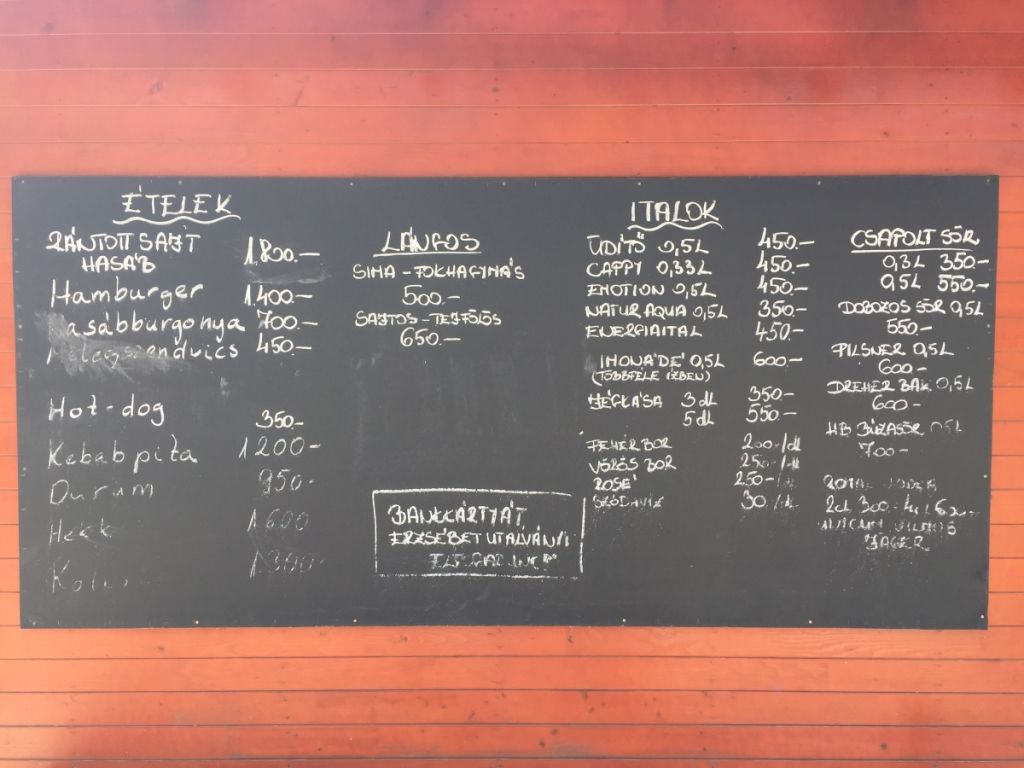 ÉTELEK
RÁNTOTT SAJT 1.800.-
HASÁB
Hamburger 1400.-
Hasábburgonya 700.-
Melegszendvics 450.-
Hot-dog 350.-
Kebab pita 1200.-
Durum 950.-
Hekk 1600
LÁNGOS
SIMA - FOKHAGYMÁS
500.-
SAJTOS - TEJFÖLÖS
650.-
BANKKÁRTYÁT
ERZSÉBET UTALVÁNYT
ITALOK
ÜDÍTŐ 0,5L 450.-
CAPPY 0,33L 450.-
EMOTION 0,5L 450.-
NATURAQUA 0,5L 350.-
ENERGIAITAL 450.-
LIMONÁDÉ 0,5L 600.-
(TÖBBFÉLE ÍZBEN)
JÉGKÁSA 3 dL 350.-
5 dL 550.-
FEHÉR BOR 200.-/dl
VÖRÖS BOR 250.-/dl
ROSÉ 250.-/dl
SZÓDAVÍZ 30/dl
CSAPOLT SÖR
0,3L 350.-
0,5L 550.-
DOBOZOS SÖR 0,5L
550.-
PILSNER 0,5L
600.-
DREHER BAK 0,5L
600.-
HB BÚZASÖR 0,5L
700.-
ROYAL VODKA
2cl 300.- 4cl 600.-
JÄGER